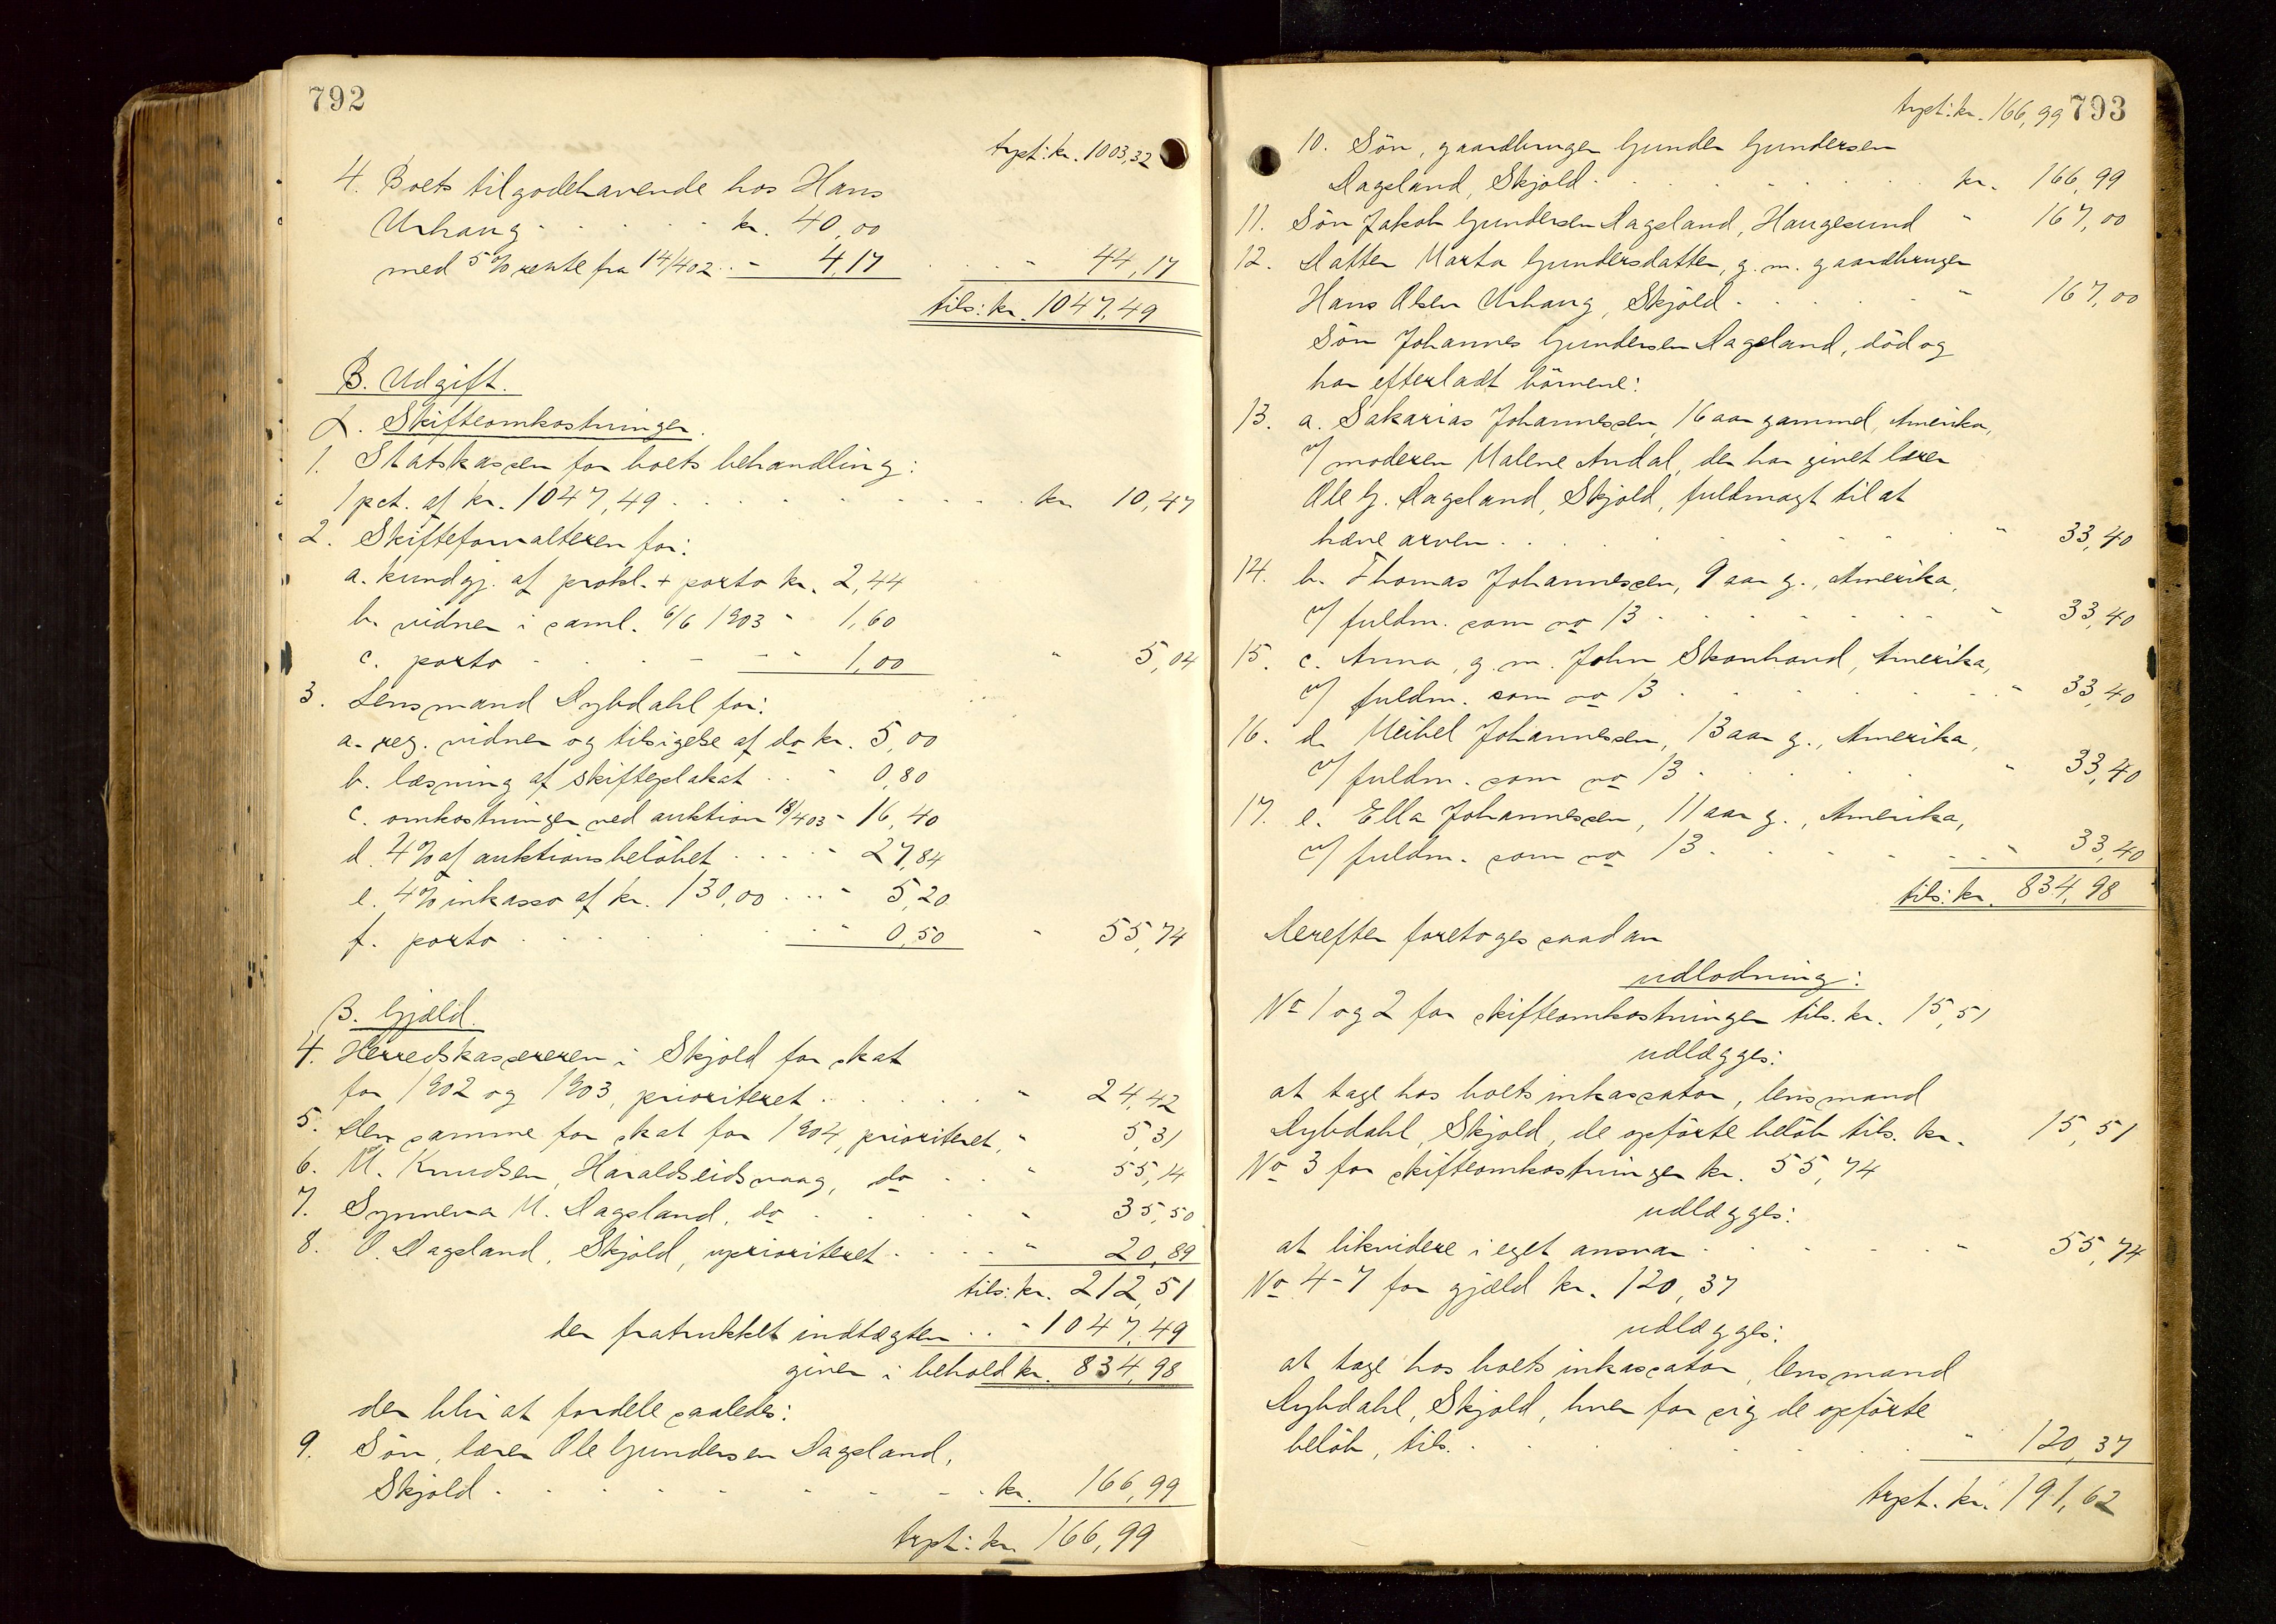 792
trpt: kr. 1003,32
4. Boets tilgodehavende hos Hans
Urhaug . . . . kr. 40,00
med 5% rente fra 14/4 02 . . " 4,17 . . . " 44,17
tils: kr. 1047,49
B. Udgift.
α. Skifteomkostninger.
1. Statskassen for boets behandling:
1 pct. af kr. 1047,49 . . . . . . . . kr. 10,47
2. Skifteforvalteren for:
a. kundgj. af prokl. + porto kr. 2,44
b. vidner i saml. 6/6 1903 " 1,60
c. porto . . . . " 1,00 " 5,04
3. Lensmand Dybdahl for:
a. reg. vidner og tilsigelse af do kr. 5,00
b. læsning af skifteplakat . . " 0,80
c. omkostninger ved auktion 18/4 03 " 16,40
d. 4% af auktionsbeløbet . . . . " 27,84
e. 4% inkasso af kr. 130,00 . . . " 5,20
f. porto . . . . . . " 0,50 " 55,74
β. Gjæld.
4. Herredskassereren i Skjold for skat
for 1902 og 1903, prioriteret . . . . . " 24,42
5. Den samme for skat for 1904, prioriteret, " 5,31
6. M. Knudsen, Haraldseidsvaag, do . . . " 55,14
7. Synneva M. Dagsland, do . . . . . " 35,50
8. O. Dagsland, Skjold, uprioriteret . . . . " 20,89
tils: kr. 212,51
der fratrukket indtægten . . " 1047,49
giver i behold kr. 834,98
der blir at fordele saaledes:
9. Søn, lærer Ole Gundersen Dagsland,
Skjold . . . . . . . . kr. 166,99
trpt: kr. 166,99
793
trpt: kr. 166,99
10. Søn, gaardbruger Gunder Gundersen
Dagsland, Skjold . . . . . . . kr. 166,99
11. Søn Jakob Gundersen Dagsland, Haugesund " 167,00
12. Datter Marta Gundersdatter, g. m. gaardbruger
Hans Olsen Urhaug, Skjold . . . . . " 167,00
Søn Johannes Gundersen Dagsland, død og
har efterladt børnene:
13. a. Sakarias Johannessen, 16 aar gammel, Amerika,
v/ moderen Malene Andal, der har givet lærer
Ole G. Dagsland, Skjold, fuldmagt til at
hæve arven . . . . . . . . . " 33,40
14. b. Thomas Johannessen, 9 aar g., Amerika,
v/ fuldm. som no 13 . . . . . . . " 33,40
15. c. Anna, g. m. John Skonhond, Amerika,
v/ fuldm. som no 13 . . . . . . . " 33,40
16. d. Meibel Johannessen, 13 aar g., Amerika,
v/ fuldm. som no 13 . . . . . . " 33,40
17. e. Ella Johannessen, 11 aar g., Amerika,
v/ fuldm. som no 13 . . . . . . " 33,40
tils: kr. 834,98
Derefter foretoges saadan
udlodning:
No 1 og 2 for skifteomkostninger tils. kr. 15,51
udlægges:
at tage hos boets inkassator, lensmand
Dybdahl, Skjold, de opførte beløb tils. kr. 15,51
No 3 for skifteomkostninger kr. 55,74
udlægges:
at likvidere i eget ansvar . . . . . . " 55,74
No 4-7 for gjæld kr. 120,37
udlægges:
at tage hos boets inkassator, lensmand
Dybdahl, Skjold, hver for sig de opførte
beløb, tils. . . . . . . . . " 120,37
trpt. kr. 191,62